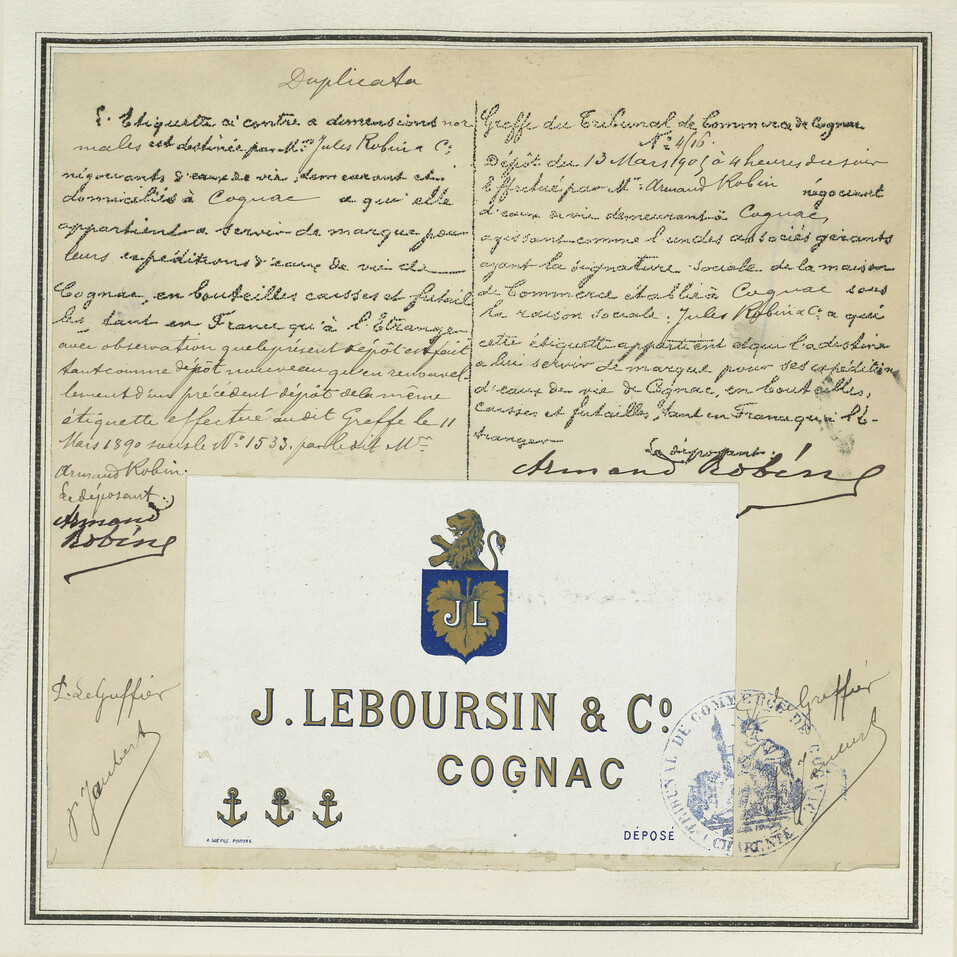 Duplicata
L'Etiquette ci contre a dimensions nor
males est destinée par Mrs Jules Robin & Cie
négociants d'eaux de vie, demeurant et
domiciliés à Cognac a qui elle
appartient a servir de marque pour
leurs expéditions d'eaux de vie de
Cognac, en bouteilles caisses et futail
les tant en France qu'à l'Etranger
avec observation que le présent dépôt est fait
tant comme dépôt nouveau qu'en renouvel-
lement d'un précédent dépôt de la même
étiquette effectué au dit Greffe le 11
Mars 1890 sous le No 1533 par le dit Mr
Armand Robin.
Le déposant.
Armand
Robin
Greffe du Tribunal de Commerce de Cognac
No 4/16.
Dépôt du 13 Mars 1905 à 4 heures du soir
Effectué par Mr Armand Robin négociant
d'eaux de vie demeurant à Cognac,
agissant comme l'un des associés gérants
ayant la signature sociale de la maison
de Commerce établie à Cognac sous
la raison sociale: Jules Robin & Cie a qui
cette étiquette appartient et qui la destine
a lui servir de marque pour ses expéditions
d'eaux de vie de Cognac, en bouteilles,
caisses et futailles, tant en France qu'a l'é-
tranger
Le déposant.
Armand Robin
JL
J. LEBOURSIN & Co.
COGNAC
DÉPOSÉ
Le Greffier
Jaubert
Le Greffier
TRIBUNAL DE COMMERCE DE COGNAC
CHARENTE